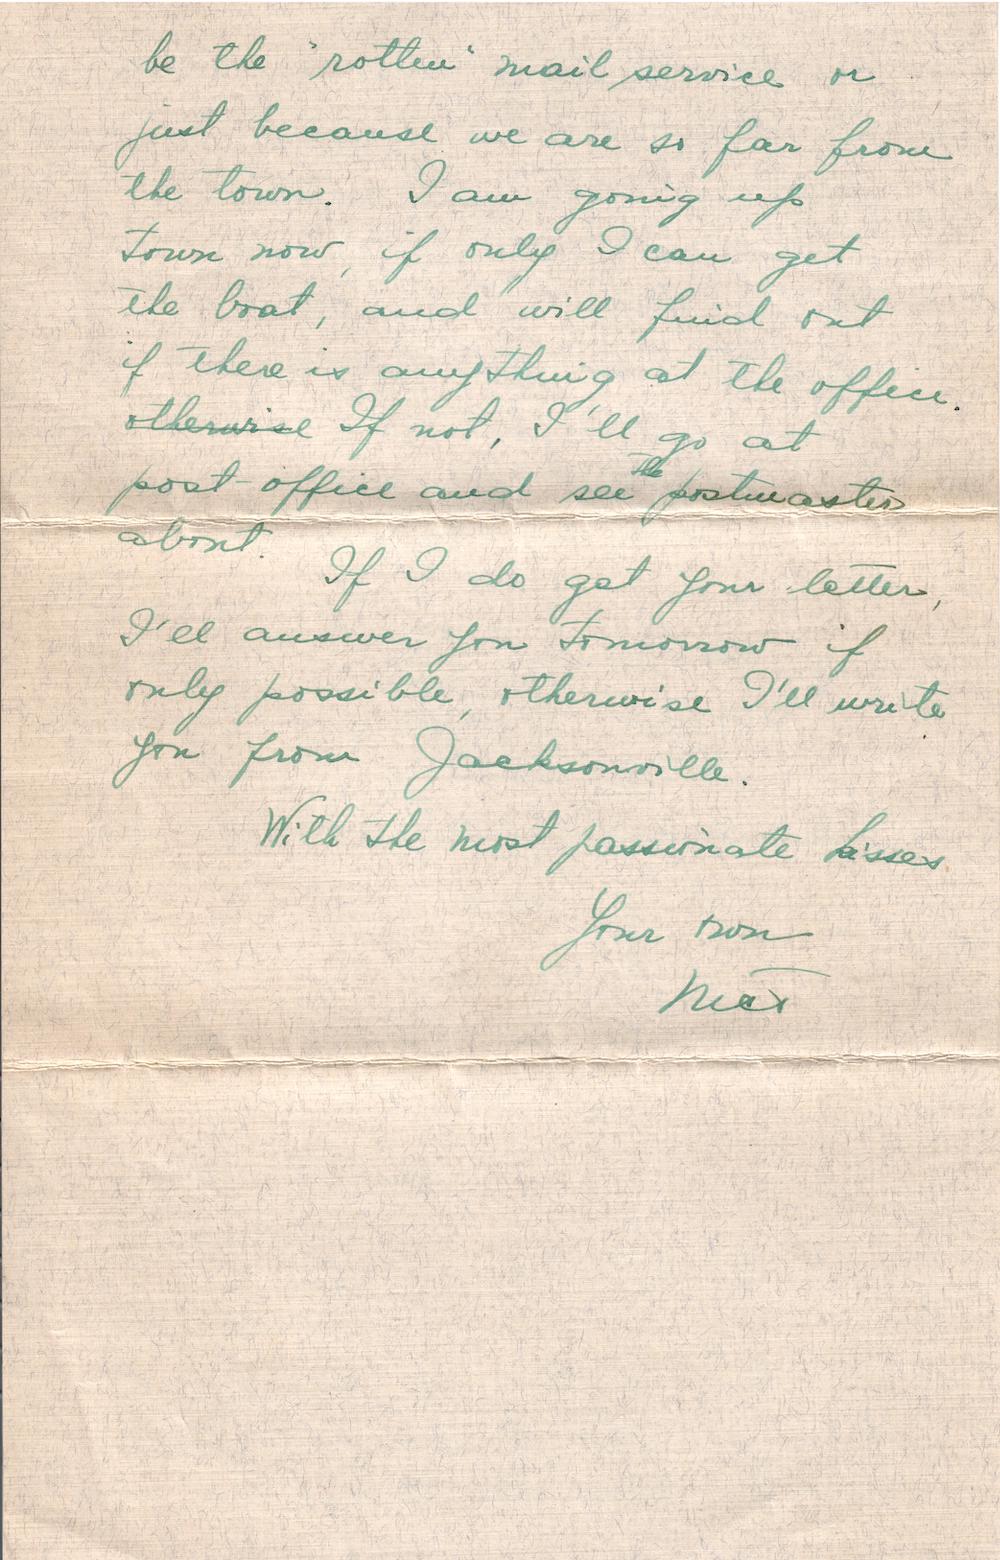 be the "rotten" mail service or
just because we are so far from
the town. I am going up
town now, if only I can get
the boat, and will find out
if there is anything at the office.
otherwise If not, I'll go at
post-office and see the postmaster
about.
If I do get your letter,
I'll answer you tomorrow if
only possible, otherwise I'll write
you from Jacksonville.
With the most passionate kisses
Your own
Max